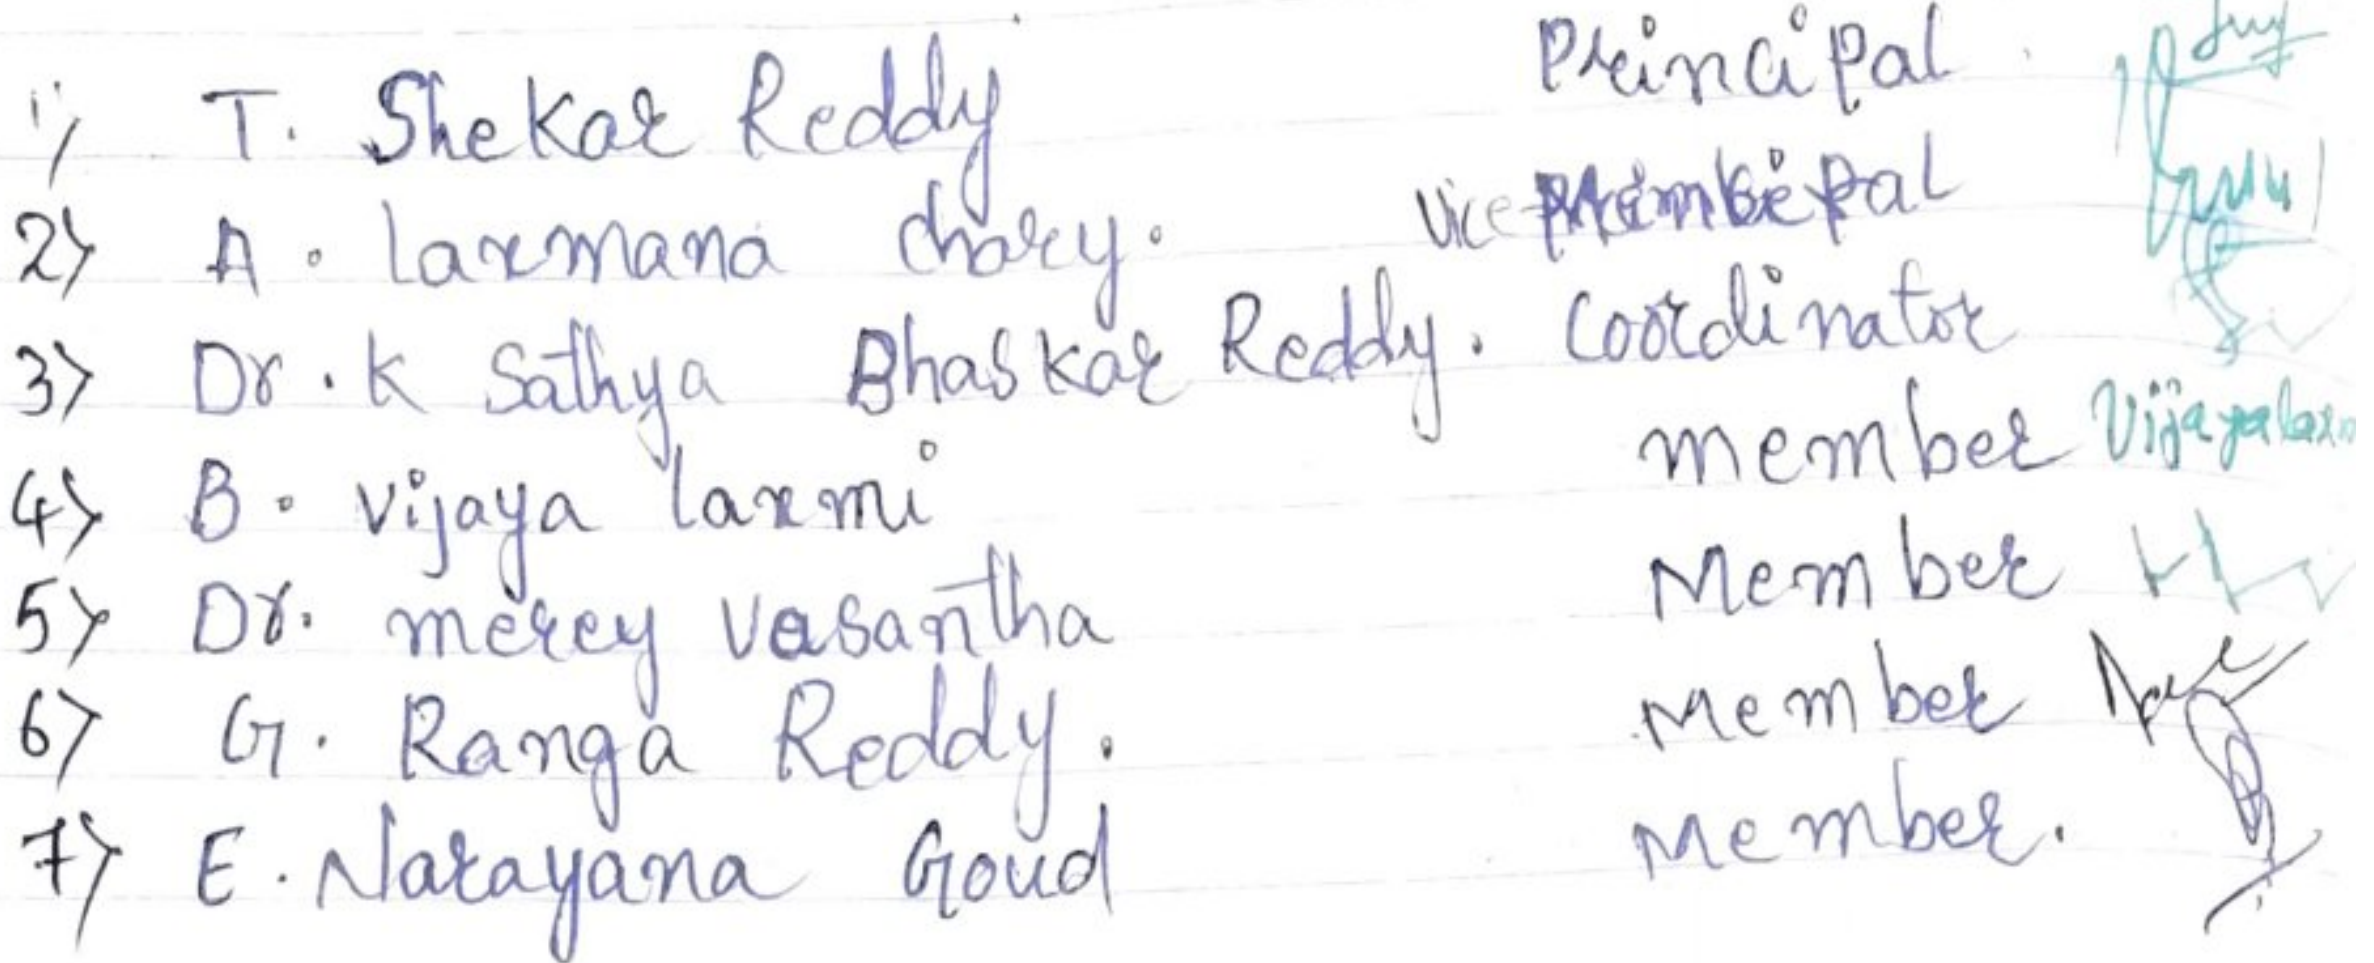 1) T. Shekar Reddy Principal
2) A. laxmana chary. Vice Principal
3) Dr. K Sathya Bhaskar Reddy. Coordinator
4) B. Vijaya laxmi member Vijayalaxm
5) Dr. mercy Vasantha Member
6) G. Ranga Reddy. Member
7) E. Narayana Goud Member.